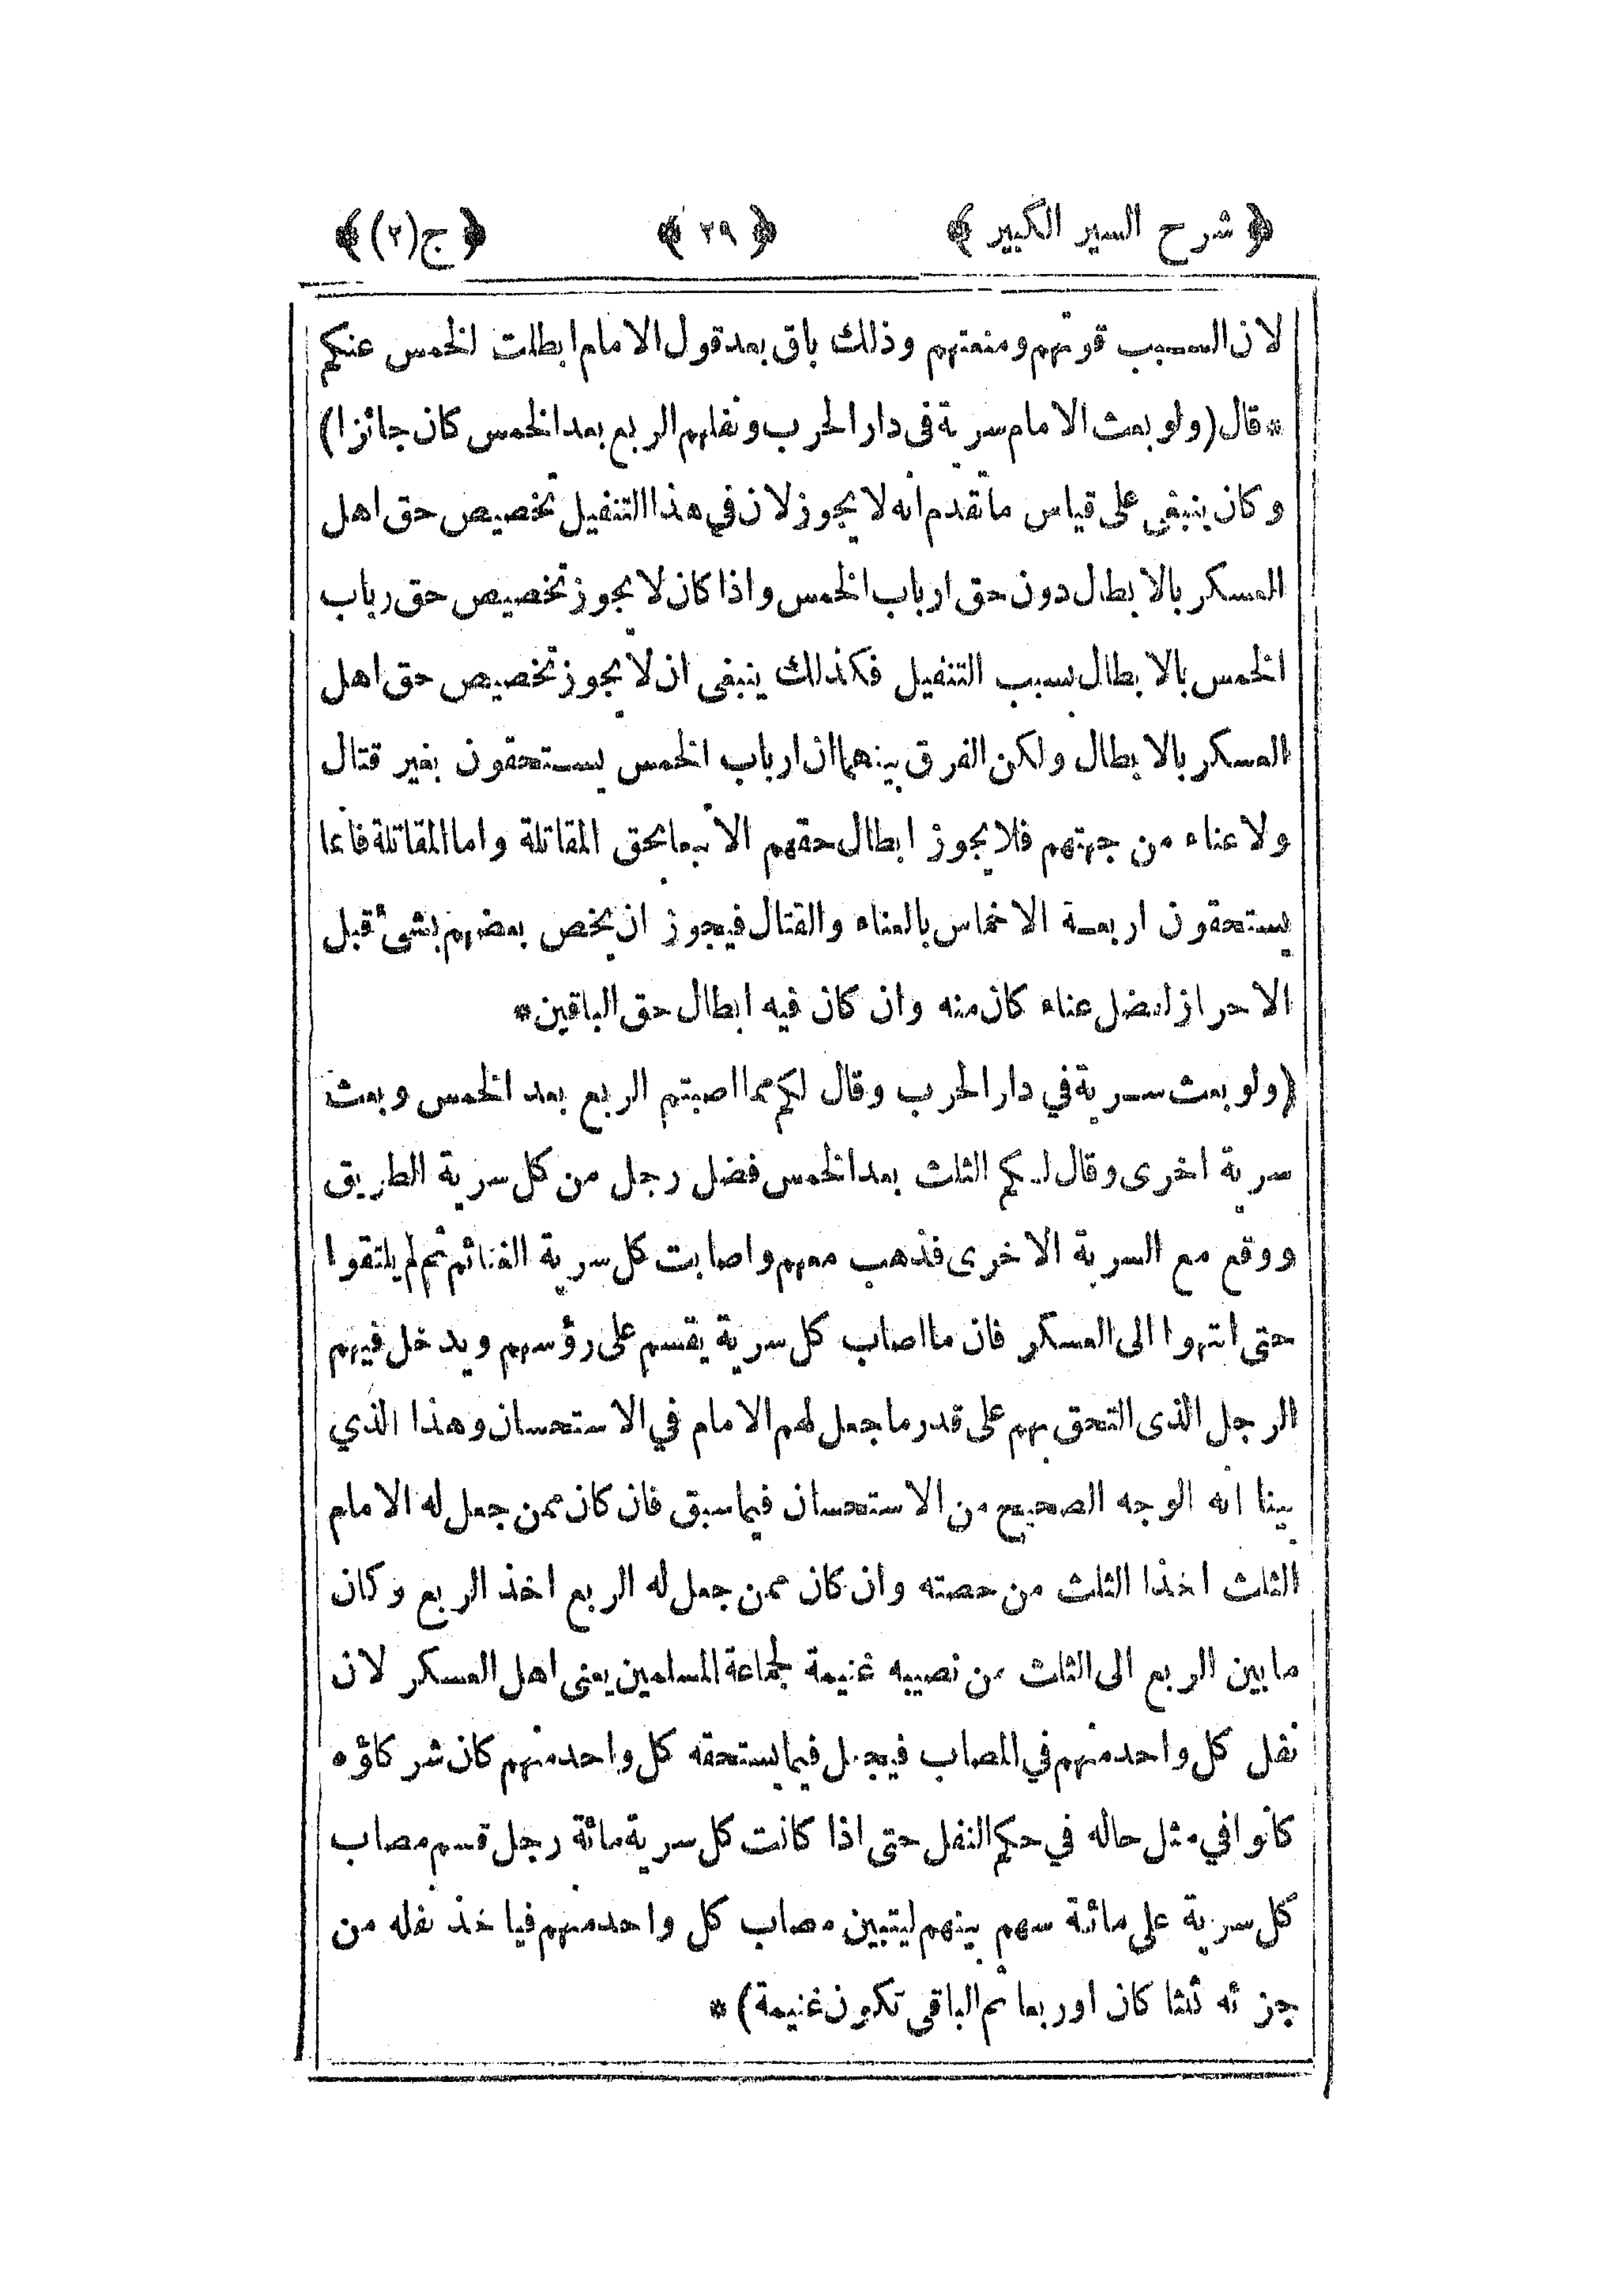 ﴿ شرح السير الكبير ﴾ ﴿ ٢٩ ﴾ ﴿ ج (٢) ﴾
لان السبب قوتهم ومنعتهم وذلك باق بعد قول الامام ابطلت الخمس عنكم
* قال (ولو بعث الامام سرية فى دار الحرب ونفلهم الربع بعد الخمس كان جائزا)
وكان ينبغى على قياس ما تقدم انه لا يجوز لان في هذا التنفيل تخصيص حق اهل
العسكر بالابطال دون حق ارباب الخمس واذا كان لا يجوز تخصيص حق رباب
الخمس بالابطال بسبب التنفيل فكذلك ينبغى ان لا يجوز تخصيص حق اهل
العسكر بالابطال ولكن الفرق بينهما ان ارباب الخمس يستحقون بغير قتال
ولا عناء من جهتهم فلا يجوز ابطال حقهم الا تبعا بحق المقاتلة واما المقاتلة فانما
يستحقون اربعة الاخماس بالعناء والقتال فيجوز ان يخص بعضهم بشئ قبل
الاحراز لفضل عناء كان منه وان كان فيه ابطال حق الباقين *
(ولو بعث سرية في دار الحرب وقال لكم مما اصبتم الربع بعد الخمس وبعث
سرية اخرى وقال لكم الثلث بعد الخمس فضل رجل من كل سرية الطريق
ووقع مع السرية الاخرى فذهب معهم واصابت كل سرية الغنائم ثم لم يلتقوا
حتى انتهوا الى العسكر فان ما اصاب كل سرية يقسم على رؤسهم ويدخل فيهم
الرجل الذى التحق بهم على قدر ما جعل لهم الامام في الاستحسان وهذا الذي
بينا انه الوجه الصحيح من الاستحسان فيما سبق فان كان ممن جعل له الامام
الثلث اخذا الثلث من حصته وان كان ممن جعل له الربع اخذ الربع وكان
ما بين الربع الى الثلث من نصيبه غنيمة لجماعة المسلمين يعنى اهل العسكر لان
نفل كل واحد منهم في المصاب فيجعل فيما يستحقه كل واحد منهم كان شركاؤه
كانوا في مثل حاله في حكم النفل حتى اذا كانت كل سرية مائة رجل قسم مصاب
كل سرية على مائة سهم بينهم ليتبين مصاب كل واحد منهم فياخذ نفله من
جزئه ثلثا كان او ربعا ثم الباقى تكون غنيمة) *